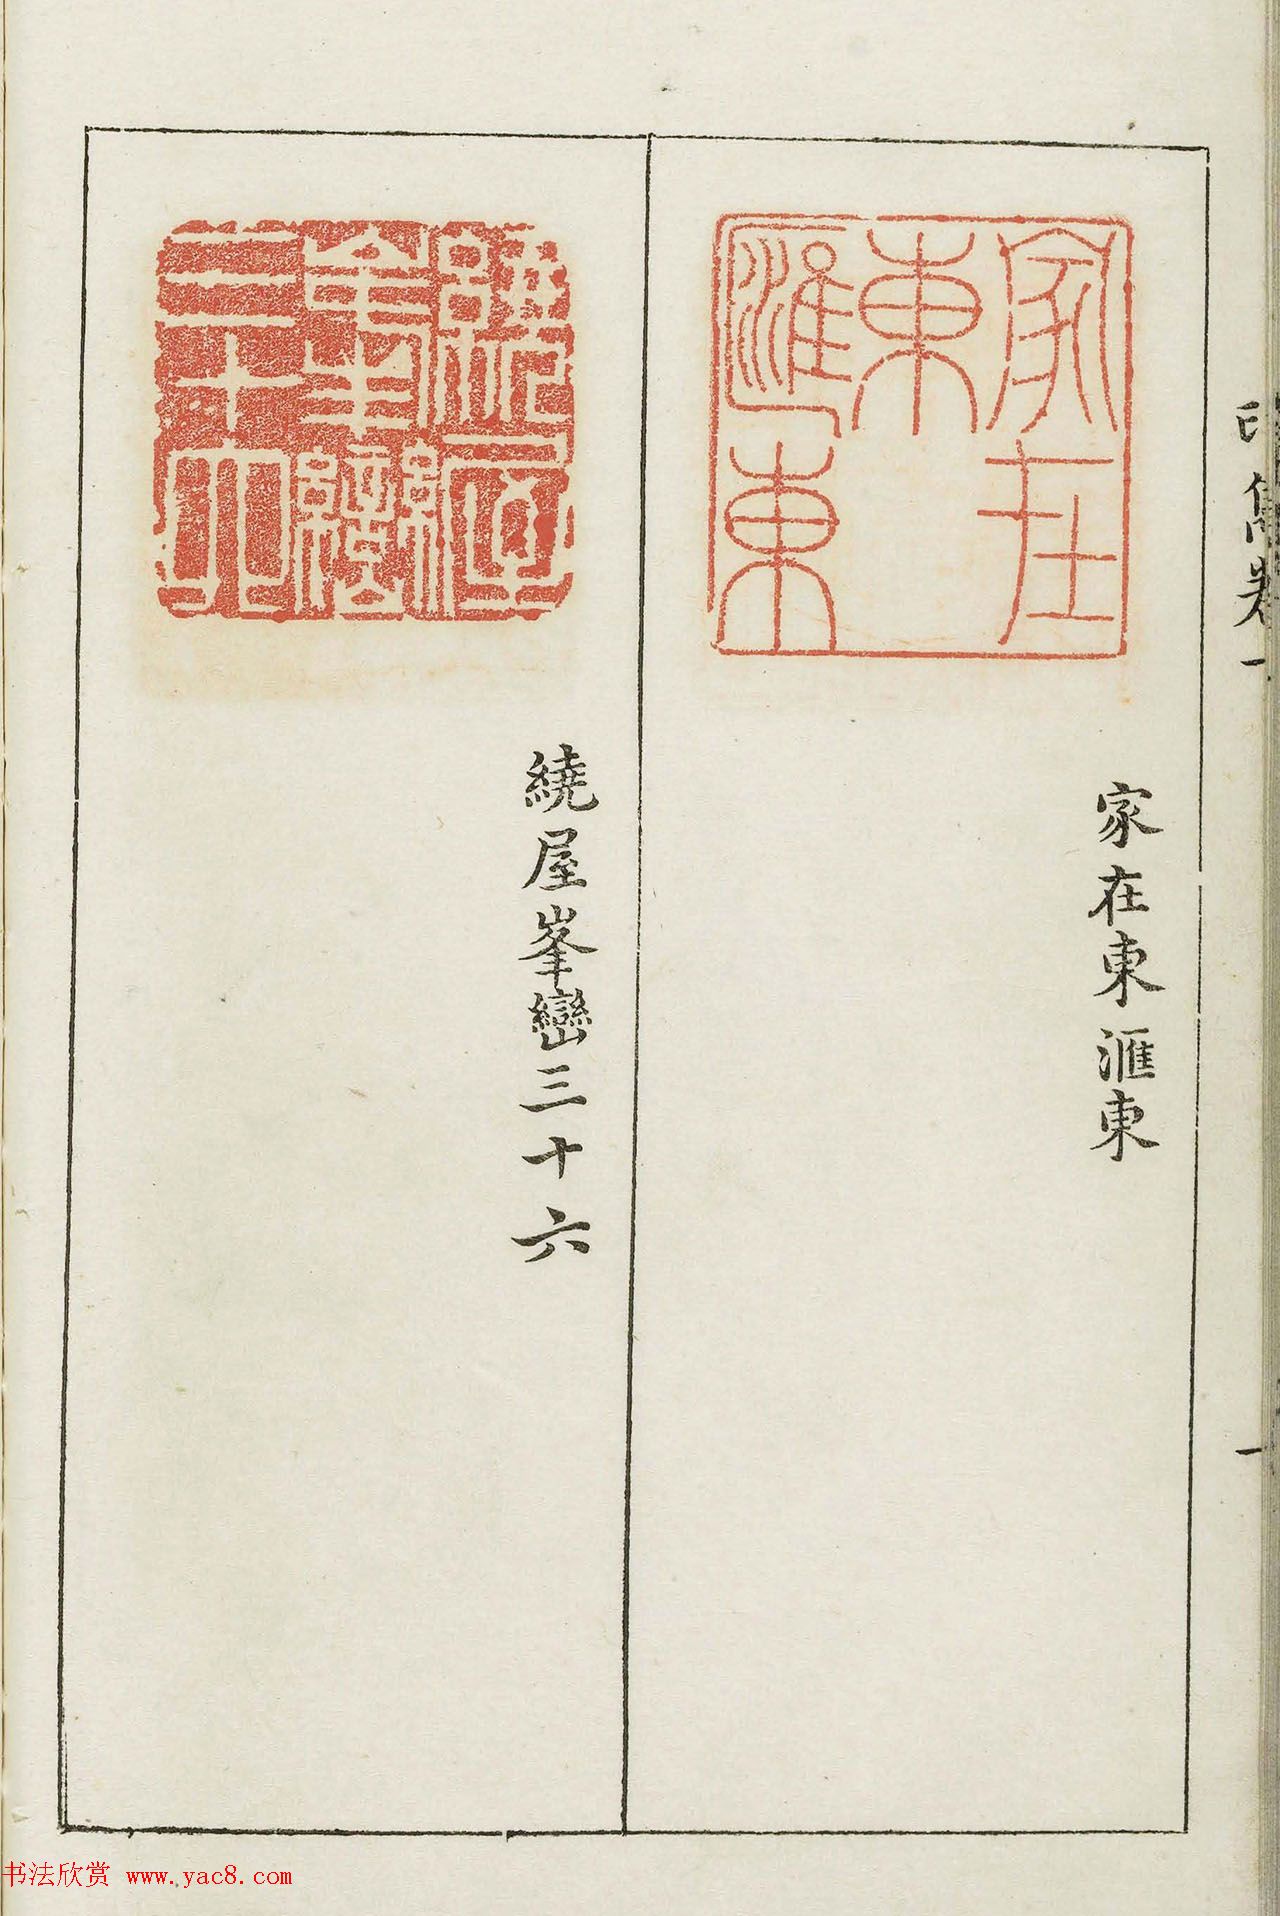 印雋卷一
一
家在東滙東
家在東滙東
繞屋峯巒三十六
繞屋峯巒三十六
书法欣赏 www.yac8.com